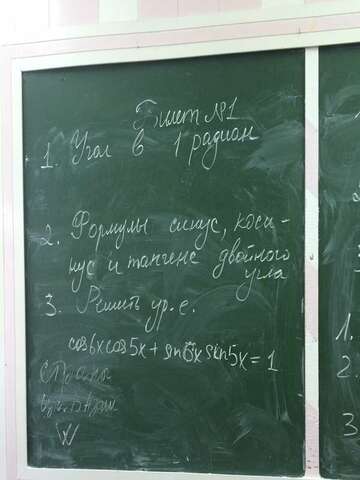 Билет №1
1. Угол в 1 радиан
2. Формулы синус, коси-
нус и тангенс двойного
угла
3. Решить ур.е.
cos6xcos5x + sin6xsin5x = 1
Страны
1.
2.
3